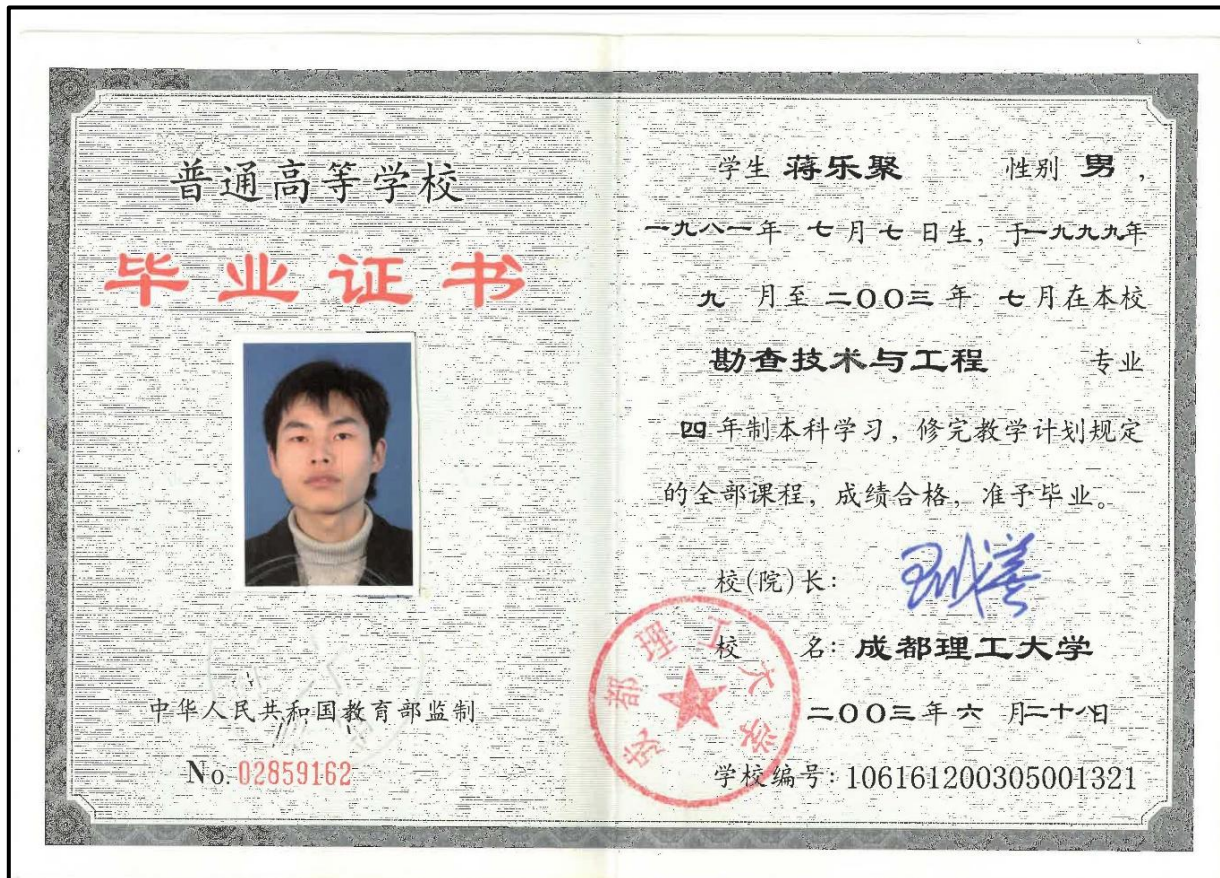 普通高等学校
毕业证书
中华人民共和国教育部监制
No. 02859162
学生 蒋乐聚 性别 男，
一九八一年 七月七 日生，于一九九九年
九 月至二〇〇三年 七月在本校
勘查技术与工程 专业
四年制本科学习，修完教学计划规定
的全部课程，成绩合格，准予毕业。
校(院)长：
校 名：成都理工大学
二〇〇三年六 月二十八日
学校编号：106161200305001321
成都理工大学